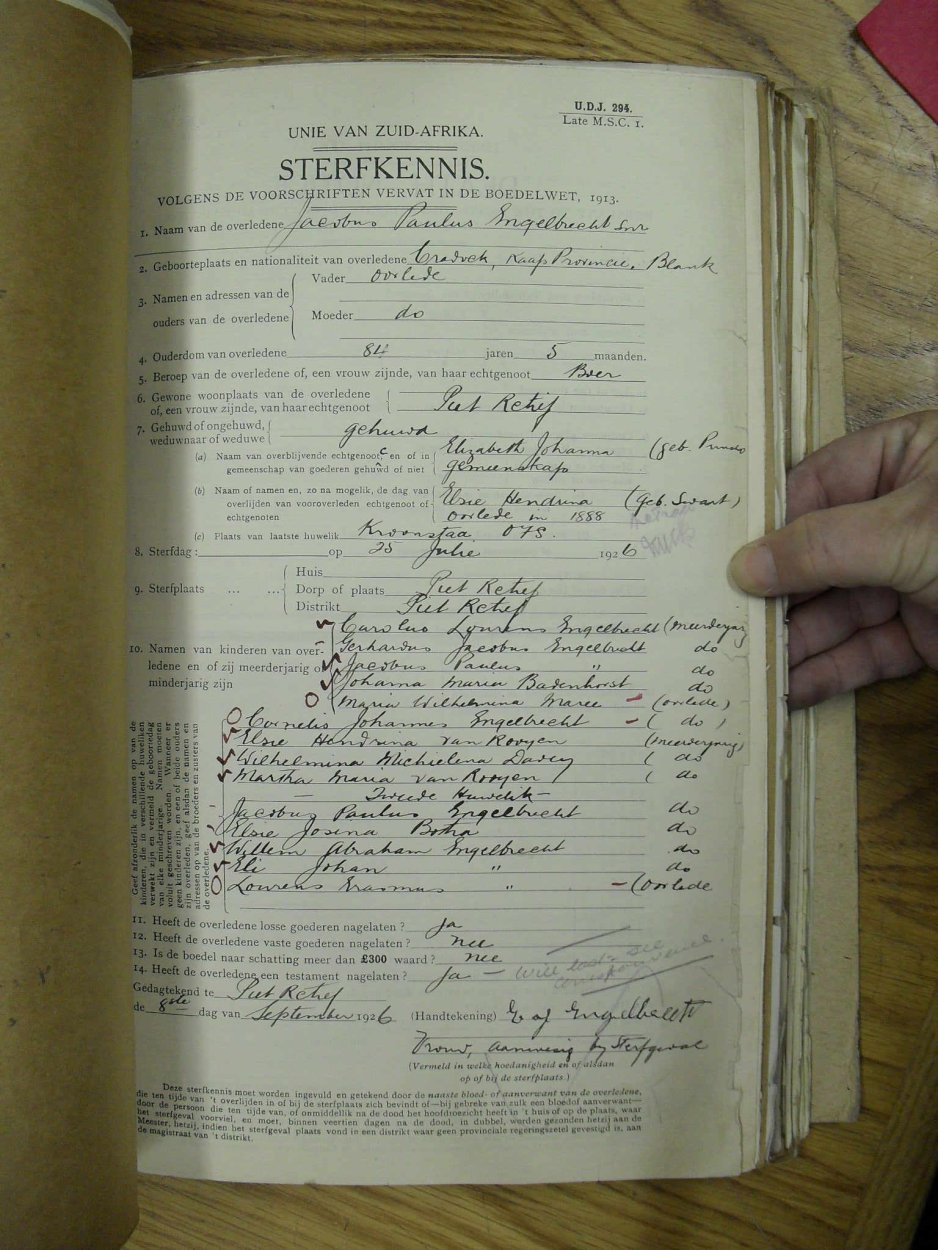 U.D.J. 294.
Late M.S.C. 1.
UNIE VAN ZUID-AFRIKA.
STERFKENNIS.
VOLGENS DE VOORSCHRIFTEN VERVAT IN DE BOEDELWET, 1913.
1. Naam van de overledene Jacobus Paulus Engelbrecht Snr
2. Geboorteplaats en nationaliteit van overledene Cradock, Kaap Provincie. Blank
3. Namen en adressen van de ouders van de overledene
Vader overlede
Moeder do
4. Ouderdom van overledene 84 jaren 5 maanden.
5. Beroep van de overledene of, een vrouw zijnde, van haar echtgenoot Boer
6. Gewone woonplaats van de overledene
of, een vrouw zijnde, van haar echtgenoot Piet Retief
7. Gehuwd of ongehuwd,
weduwnaar of weduwe gehuwd
(a) Naam van overblijvende echtgenoot, en of in Elizabeth Johanna (geb.
gemeenschap van goederen gehuwd of niet gemeenskap
(b) Naam of namen en, zo na mogelik, de dag van Elsie Hendrina (geb. Swart)
overlijden van vooroverleden echtgenoot of overlede in 1888
echtgenoten
(c) Plaats van laatste huwelik Kroonstad OFS.
8. Sterfdag: op 25 Julie 1926
9. Sterfplaats ... ...
Huis
Dorp of plaats Piet Retief
Distrikt Piet Retief
10. Namen van kinderen van over-
ledene en of zij meerderjarig of
minderjarig zijn
Carolus Lourens Engelbrecht (meerderjarig
Gerhardus Jacobus Engelbrecht do
Jacobus Paulus " do
Johanna Maria Badenhorst do
Maria Wilhelmina Maree - (overlede)
Cornelis Johannes Engelbrecht - ( do )
Elsie Hendrina van Rooyen (meerderjarig)
Wilhelmina Michielena Davey ( do
Martha Maria van Rooyen ( do
— Tweede Huwelik —
Jacobus Paulus Engelbrecht do
Elsie Josina Botha do
Willem Abraham Engelbrecht do
Eli Johan " do
Lourens Erasmus " - (overlede
Geef afzonderlik de namen op van de
kinderen, die in verschillende huweliken
verwekt zijn en vermeld de geboortedag
van elke minderjarige. Namen moeten
voluit geschreven worden. Wanneer er
geen kinderen zijn, en een of beide ouders
zijn overleden, geef alsdan de namen en
adressen op van de broeders en zusters van
de overledene.
11. Heeft de overledene losse goederen nagelaten? Ja
12. Heeft de overledene vaste goederen nagelaten? nee
13. Is de boedel naar schatting meer dan £300 waard? nee
14. Heeft de overledene een testament nagelaten? Ja — Will lost - see
correspondence.
Gedagtekend te Piet Retief
de 8ste dag van September 1926 (Handtekening) E J Engelbrecht
Vrouw, aanwesig by sterfgeval
(Vermeld in welke hoedanigheid en of alsdan
op of bij de sterfplaats.)
Deze sterfkennis moet worden ingevuld en getekend door de naaste bloed- of aanverwant van de overledene,
die ten tijde van 't overlijden in of bij de sterfplaats zich bevindt of—bij gebreke van zulk een bloed of aanverwant—
door de persoon die ten tijde van, of onmiddellik na de dood het hoofdtoezicht heeft in 't huis of op de plaats, waar
het sterfgeval voorviel, en moet, binnen veertien dagen na de dood, in dubbel, worden gezonden hetzij aan de
Meester, hetzij, indien het sterfgeval plaats vond in een distrikt waar geen provinciale regeringszetel gevestigd is, aan
de magistraat van 't distrikt.